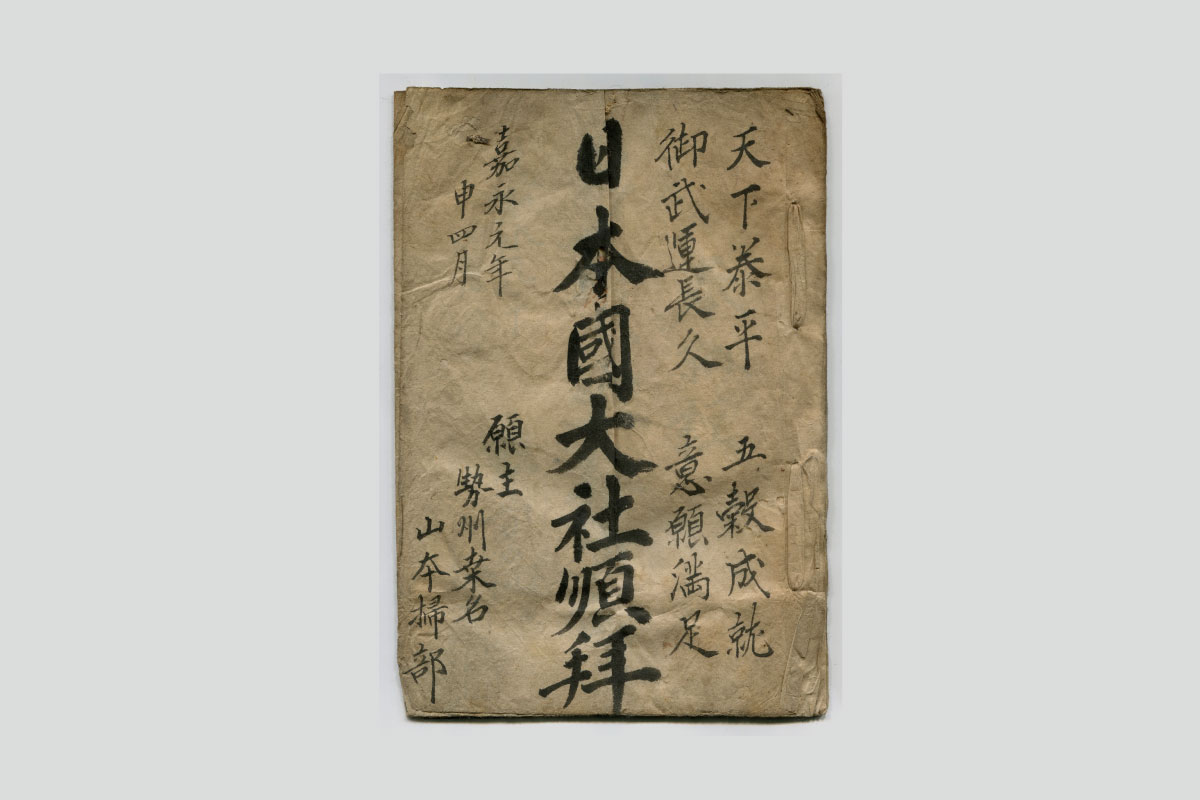 天下泰平 五穀成就
御武運長久 意願満足
日本國大社順拝
嘉永元年
申四月
願主
勢州桒名
山本掃部